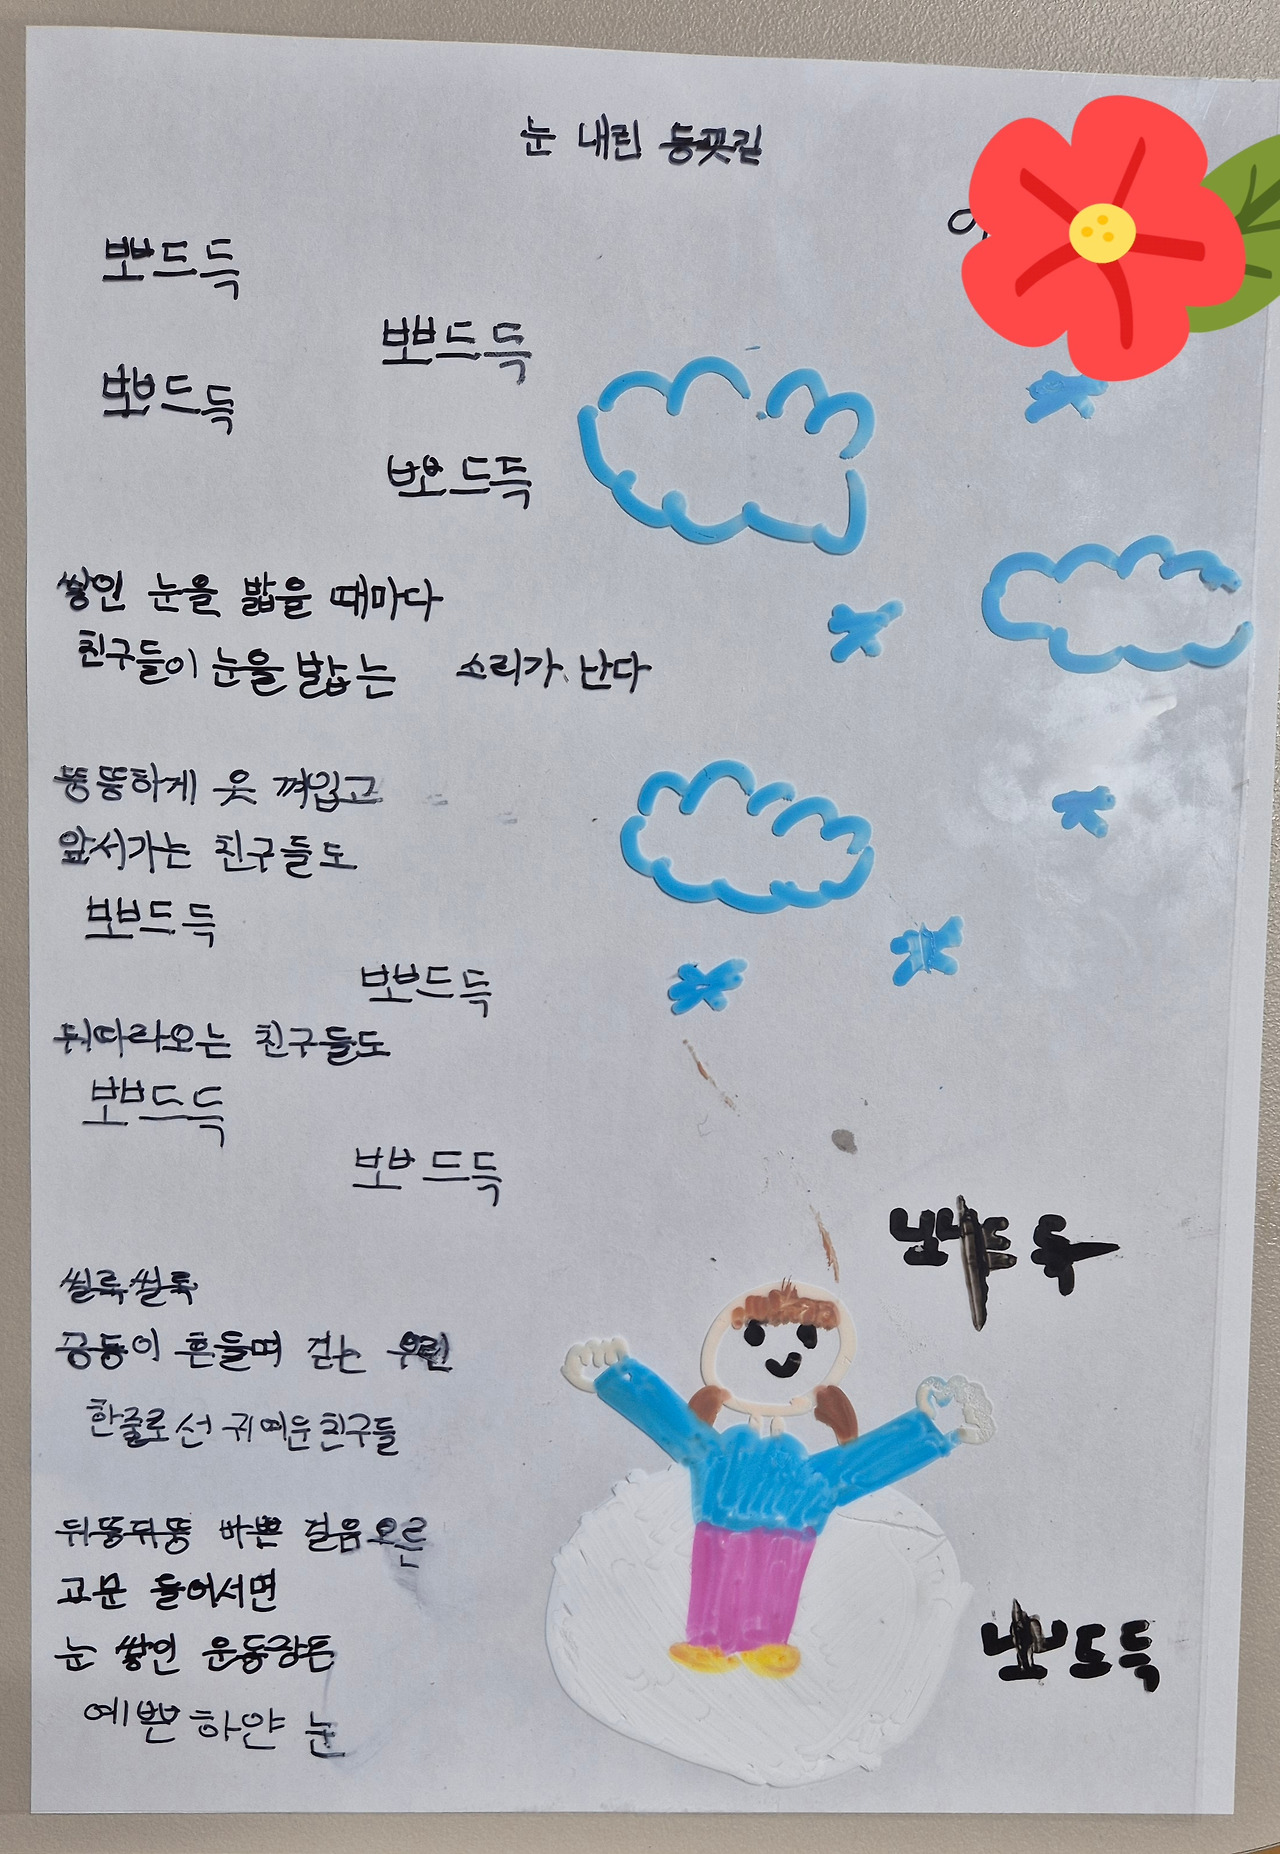 눈 내린 등굣길
뽀드득
뽀드득
뽀드득
뽀드득
쌓인 눈을 밟을 때마다
친구들이 눈을 밟는 소리가 난다
뚱뚱하게 옷 껴입고
앞서가는 친구들도
뽀드득
뽀드득
뒤따라오는 친구들도
뽀드득
뽀드득
뽀드득
씰룩씰룩
궁둥이 흔들며 걷는 우린
한줄로 선 귀여운 친구들
뒤뚱뒤뚱 바쁜 걸음으론
교문 들어서면
뽀드득
눈 쌓인 운동장도
예쁜 하얀 눈